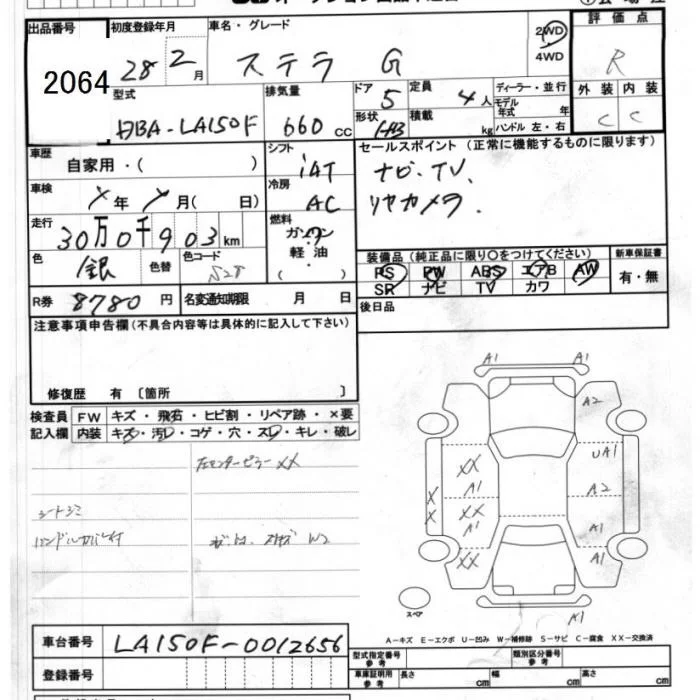 出品番号
2064
初度登録年月
28 2 月
車名・グレード
ステラ G
2WD
4WD
評価点
R
型式
DBA-LA150F
排気量
660 cc
ドア
5
定員
4 人
形状
HB
積載
kg
ディーラー・並行
モデル
年式 年
ハンドル 左・右
外装 内装
C C
車歴
自家用・( )
シフト
iAT
セールスポイント (正常に機能するものに限ります)
ナビ・TV、
リヤカメラ.
車検
年 月( 日)
冷房
AC
走行
30万0千903km
燃料
ガソリン
軽油
色
銀
色替
色コード
S28
装備品 (純正品に限り〇をつけてください)
PS PW ABS エアB AW
SR ナビ TV カワ
新車保証書
有・無
R券 8780 円
名変通知期限 月 日
後日品
注意事項申告欄 (不具合内容等は具体的に記入して下さい)
修復歴 有 〔箇所 〕
検査員
記入欄
FW キズ・飛石・ヒビ割・リペア跡・×要
内装 キズ・汚レ・コゲ・穴・スレ・キレ・破レ
左センターピラー XX
シートシミ
ハンドルカバー付
W2
A1 A1
A2
UA1
XX
A1
A2
X
X
XX
A1
A1
XX
A1
スペア
A1
A-キズ E-エクボ U-凹み W-補修跡 S-サビ C-腐食 XX-交換済
車台番号 LA150F-0012656
登録番号
型式指定番号
参考
類別区分番号
参考
車庫証明用
参考
長さ cm 幅 cm 高さ cm